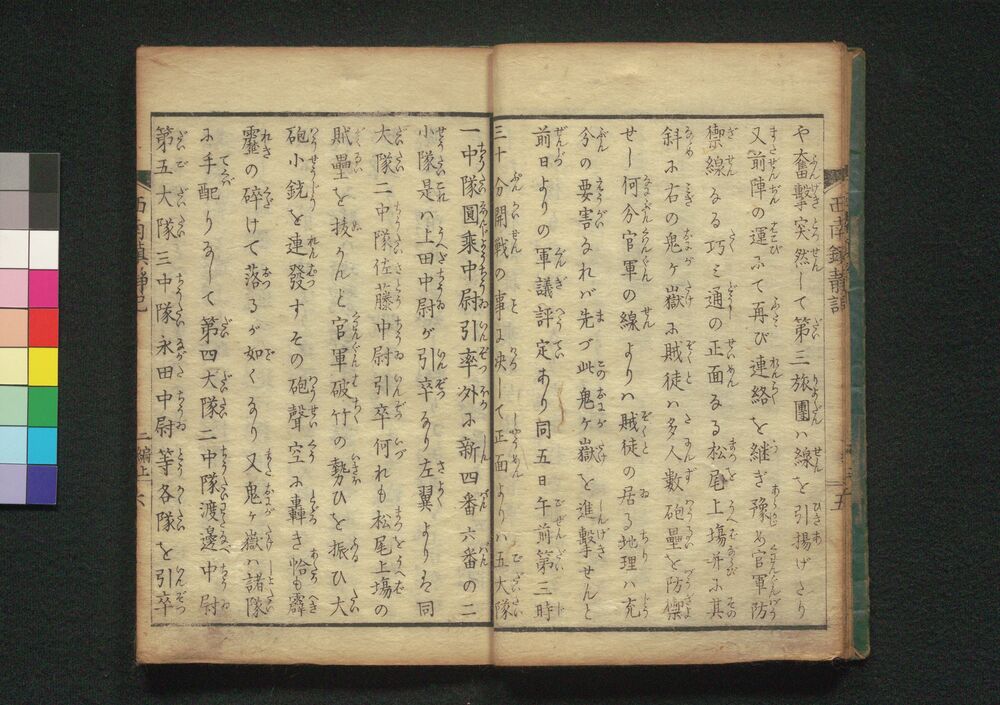 や奮擊突然して第三旅團ハ線を引揚げさり
又前陣の運にて再び連絡を継ぎ豫め官軍防
禦線なる巧ミ通の正面なる松尾上塲并に其
斜に右の鬼ヶ嶽に賊徒ハ多人數砲壘を防禦
せし何分官軍の線よりハ賊徒の居る地理ハ充
分の要害なれバ先づ此鬼ヶ嶽を進擊せんと
前日よりの軍議評定あり同五日午前第三時
三十分開戰の事に决して正面よりハ五大隊
一中隊圓乘中尉引率外に新四番六番の二
小隊是ハ上田中尉が引卒なり左翼よりハ同
大隊二中隊佐藤中尉引卒何れも松尾上塲の
賊壘を拔かんと官軍破竹の勢ひを振ひ大
砲小銃を連發すその砲聲空に轟き恰も霹
靂の碎けて落るが如くなり又鬼ヶ嶽ハ諸隊
に手配りなして第四大隊二中隊渡邊中尉
第五大隊三中隊永田中尉等各隊を引卒
西南鎮静記
二編上
六
五